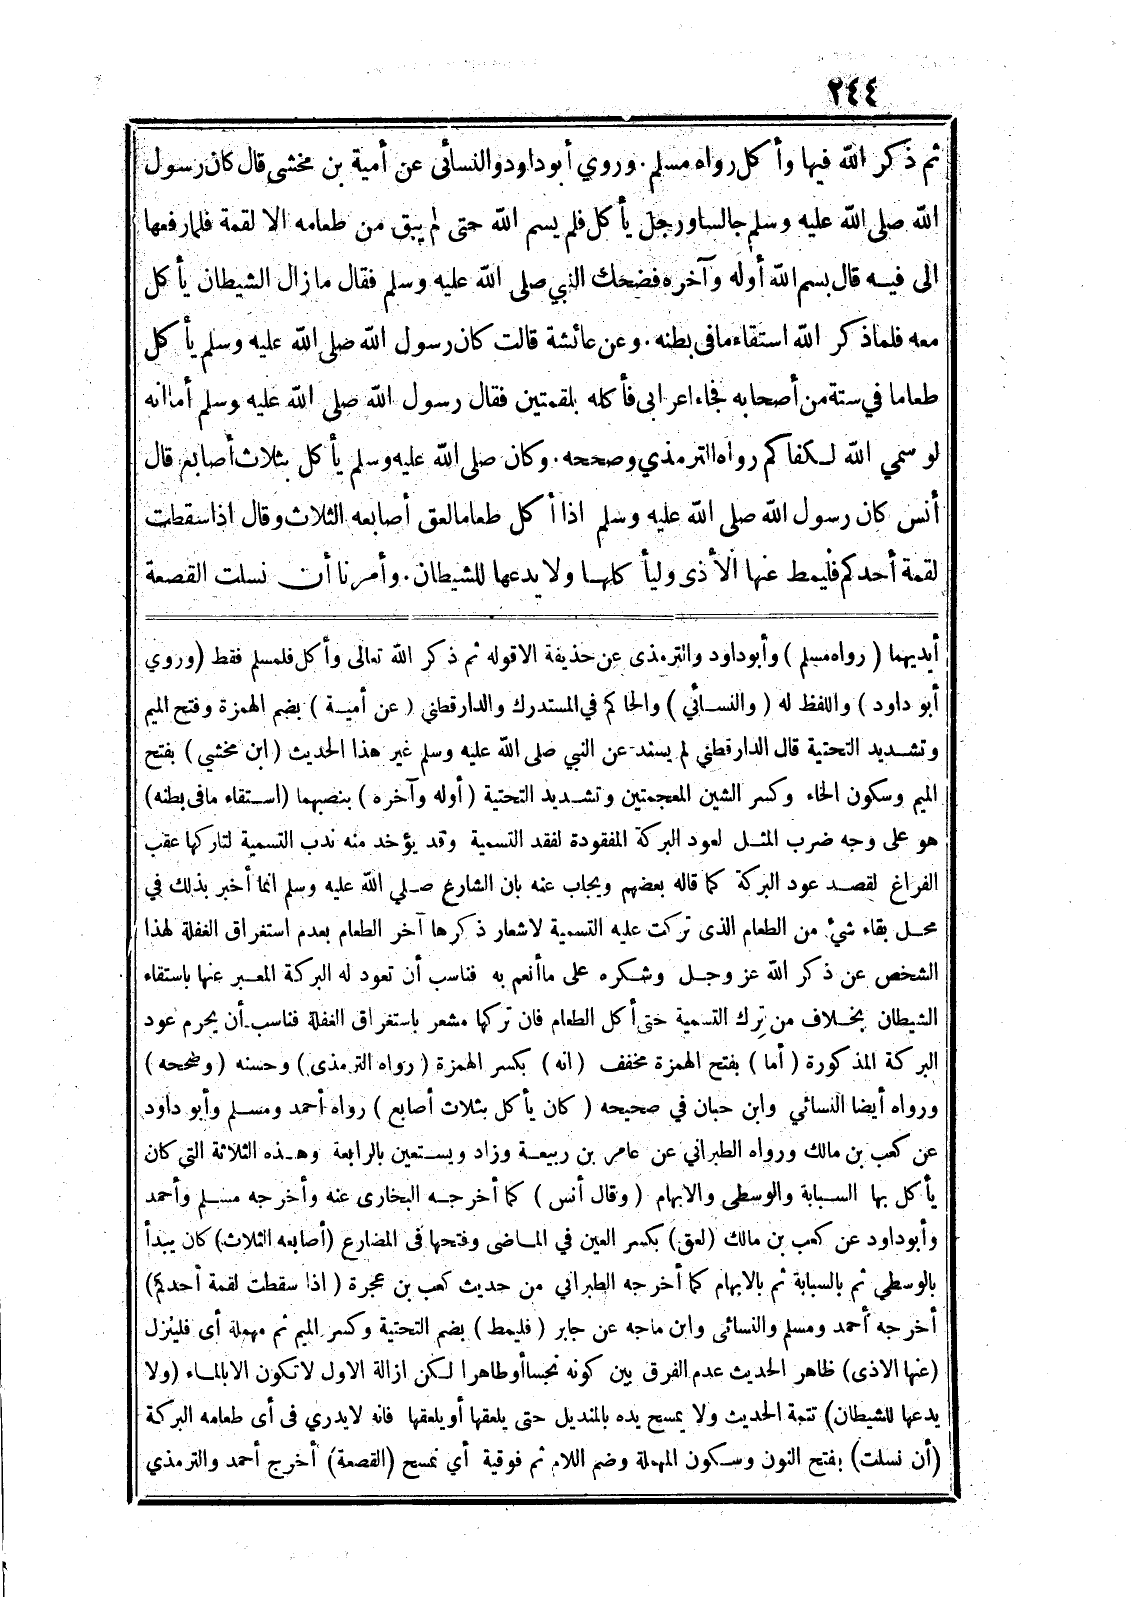 ٢٤٤
ثم ذكر الله فيها وأكل رواه مسلم. وروي أبوداود والنسائى عن أمية بن مخشى قال كان رسول
الله صلى الله عليه وسلم جالسا ورجل يأكل فلم يسم الله حتى لم يبق من طعامه الا لقمة فلما رفعها
الى فيه قال بسم الله أوله وآخره فضحك النبي صلى الله عليه وسلم فقال مازال الشيطان يأكل
معه فلما ذكر الله استقاء مافى بطنه. وعن عائشة قالت كان رسول الله صلى الله عليه وسلم يأكل
طعاما في ستة من أصحابه فجاء اعرابى فأكله بلقمتين فقال رسول الله صلى الله عليه وسلم أما انه
لو سمي الله لكفاكم رواه الترمذي وصححه. وكان صلى الله عليه وسلم يأكل بثلاث أصابع قال
أنس كان رسول الله صلى الله عليه وسلم اذا أكل طعاما لعق أصابعه الثلاث وقال اذا سقطت
لقمة أحدكم فليمط عنها الأذى وليأكلها ولا يدعها للشيطان. وأمرنا أن نسلت القصعة
أيديهما (رواه مسلم) وأبوداود والترمذى عن حذيفة الاقوله ثم ذكر الله تعالى وأكل فلمسلم فقط (وروي
أبو داود) واللفظ له (والنسائي) والحاكم في المستدرك والدارقطني (عن أمية) بضم الهمزة وفتح الميم
وتشديد التحتية قال الدارقطني لم يسند عن النبي صلى الله عليه وسلم غير هذا الحديث (ابن مخشي) بفتح
الميم وسكون الخاء وكسر الشين المعجمتين وتشديد التحتية (أوله وآخره) بنصبهما (استقاء مافى بطنه)
هو على وجه ضرب المثل لعود البركة المفقودة لفقد التسمية وقد يؤخد منه ندب التسمية لتاركها عقب
الفراغ لقصد عود البركة كما قاله بعضهم ويجاب عنه بان الشارع صلي الله عليه وسلم انما أخبر بذلك في
محل بقاء شئ من الطعام الذى تركت عليه التسمية لاشعار ذكرها آخر الطعام بعدم استغراق الغفلة لهذا
الشخص عن ذكر الله عز وجل وشكره على ماأنعم به فناسب أن تعود له البركة المعبر عنها باستقاء
الشيطان بخلاف من ترك التسمية حتى أكل الطعام فان تركها مشعر باستغراق الغفلة فناسب أن يحرم عود
البركة المذكورة (أما) بفتح الهمزة مخفف (انه) بكسر الهمزة (رواه الترمذى) وحسنه (وصححه)
ورواه أيضا النسائي وابن حبان في صحيحه (كان يأكل بثلاث أصابع) رواه أحمد ومسلم وأبو داود
عن كعب بن مالك ورواه الطبراني عن عامر بن ربيعة وزاد ويستعين بالرابعة وهذه الثلاثة التي كان
يأكل بها السبابة والوسطى والابهام (وقال أنس) كما أخرجه البخارى عنه وأخرجه مسلم وأحمد
وأبوداود عن كعب بن مالك (لعق) بكسر العين في الماضى وفتحها فى المضارع (أصابعه الثلاث) كان يبدأ
بالوسطي ثم بالسبابة ثم بالابهام كما أخرجه الطبراني من حديث كعب بن عجرة (اذا سقطت لقمة أحدكم)
أخرجه أحمد ومسلم والنسائى وابن ماجه عن جابر (فليمط) بضم التحتية وكسر الميم ثم مهملة أى فلينزل
(عنها الاذى) ظاهر الحديث عدم الفرق بين كونه نجسا أو طاهرا لكن ازالة الاول لاتكون الابالماء (ولا
يدعها للشيطان) تتمة الحديث ولا يمسح يده بالمنديل حتى يلعقها أو يلعقها فانه لايدري فى أى طعامه البركة
(أن نسلت) بفتح النون وسكون المهملة وضم اللام ثم فوقية أي نمسح (القصعة) أخرج أحمد والترمذي